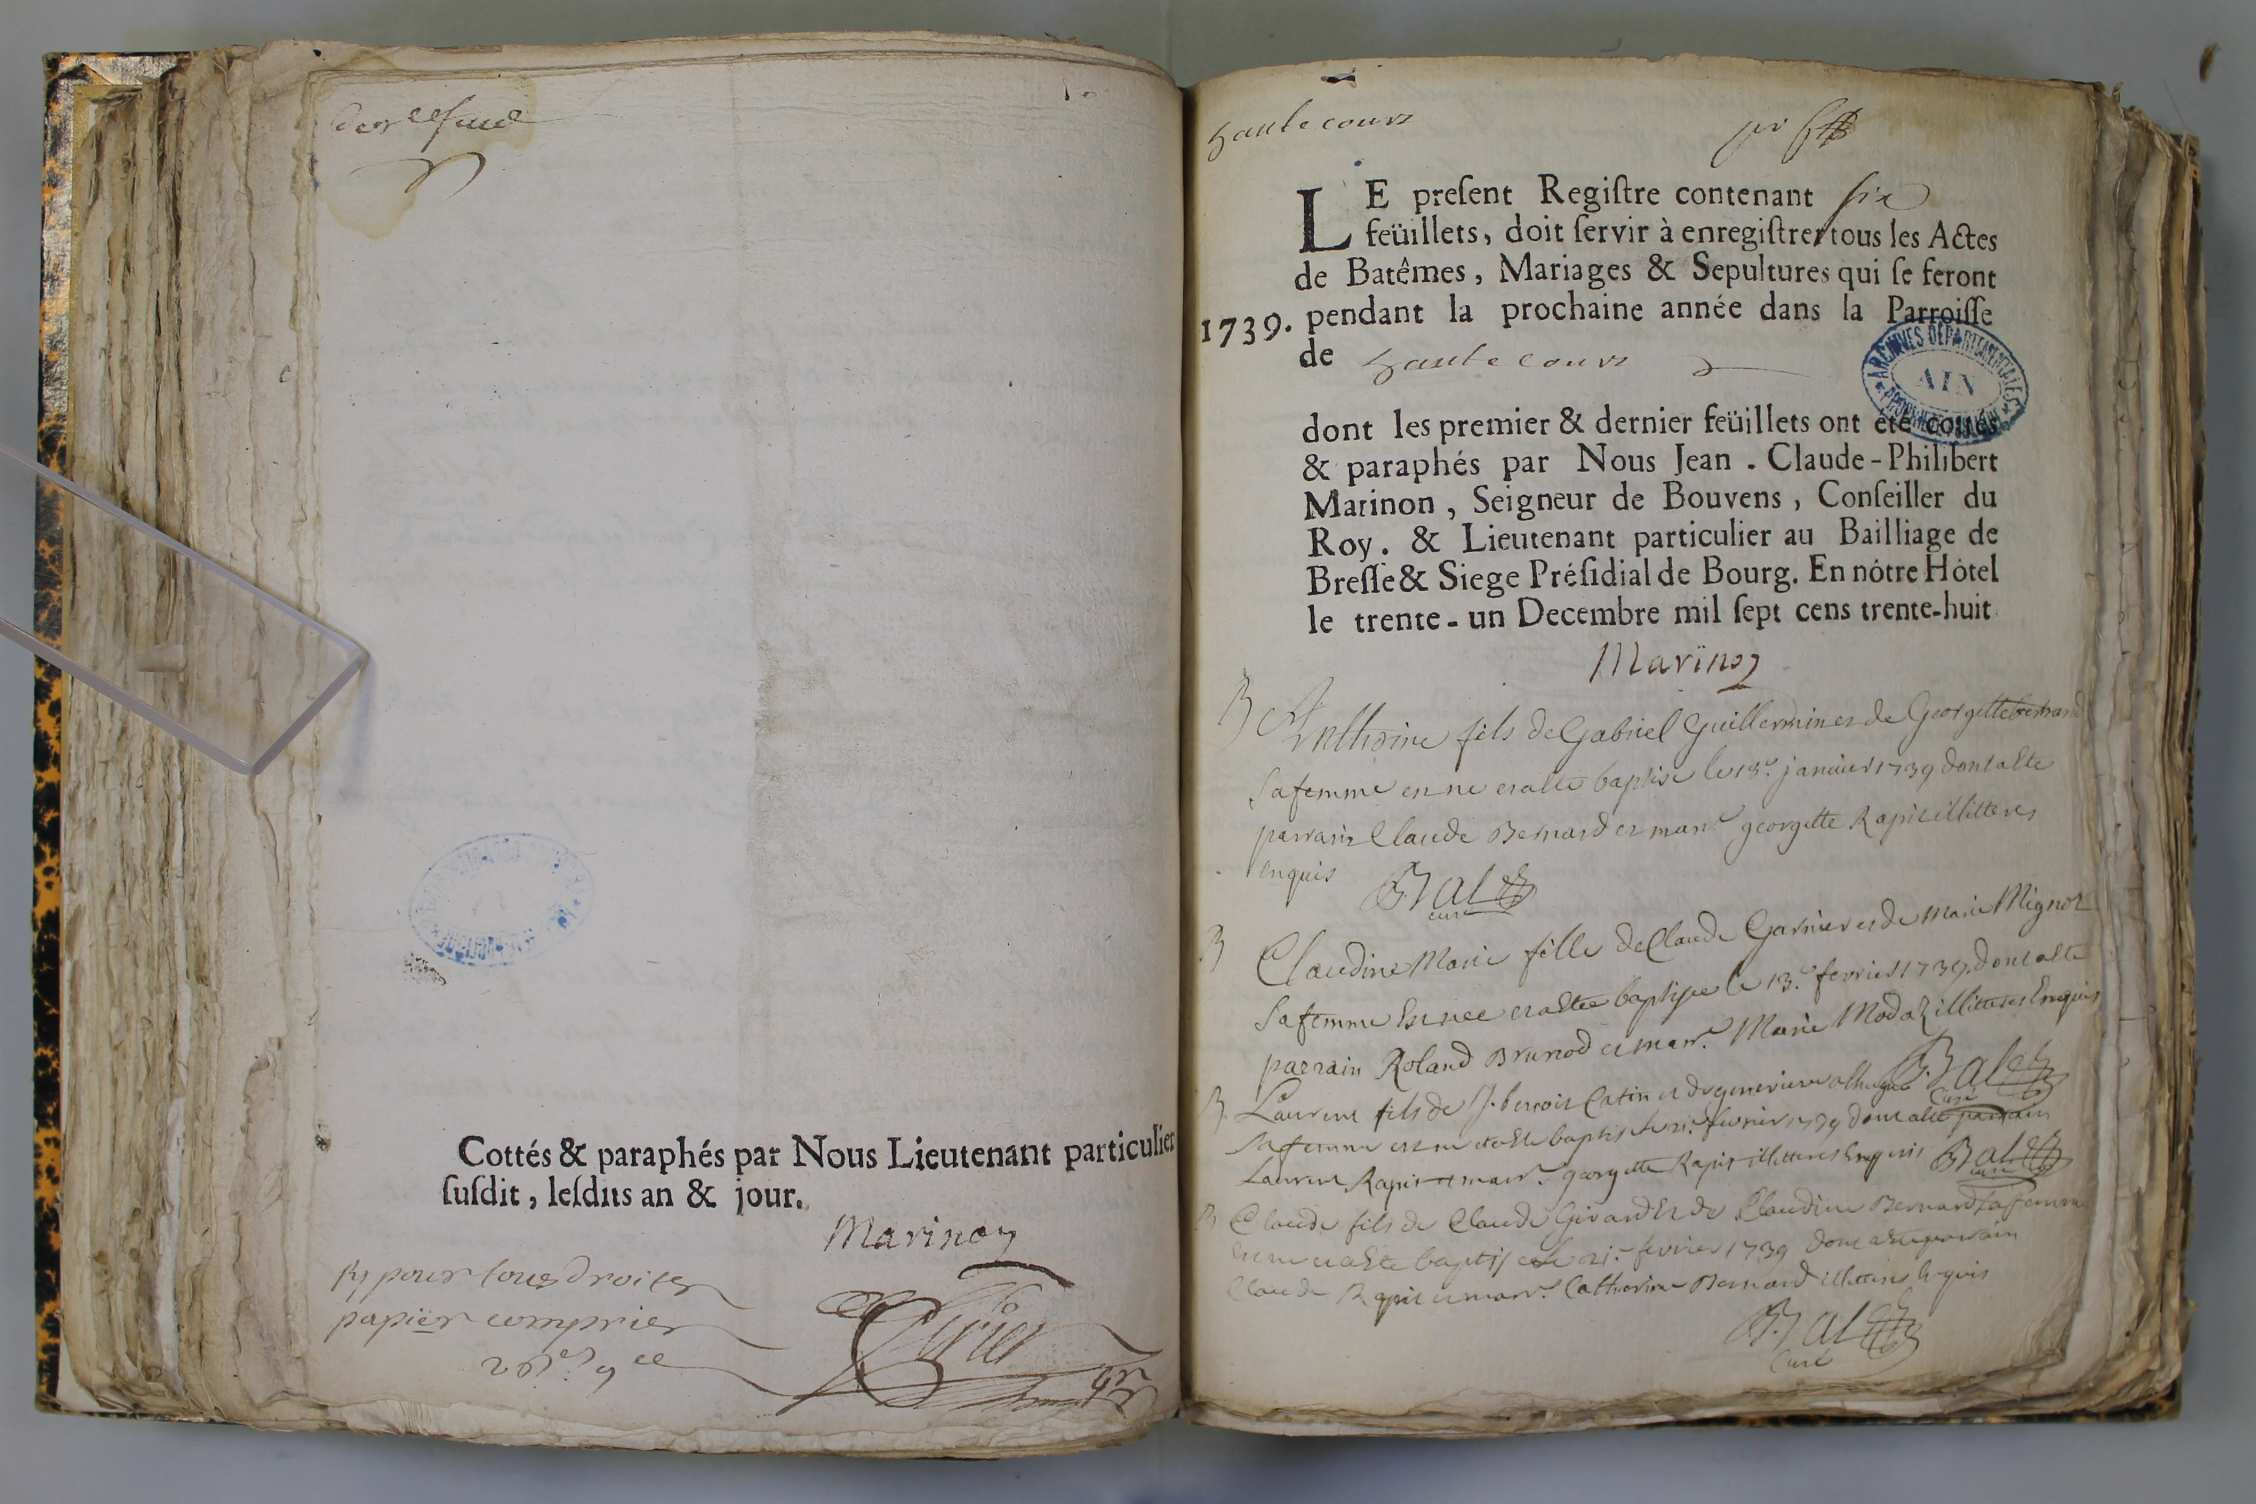 Cottés & paraphés par Nous Lieutenant particulier
susdit, lesdits an & jour.
Marinon
pour tous droits
papier comprier
hautecour
LE present Registre contenant six
feüillets, doit servir à enregistrer tous les Actes
de Batêmes, Mariages & Sepultures qui se feront
1739. pendant la prochaine année dans la Parroisse
de hautecour
ARCHIVES DEPARTEMENTALES
AIN
dont les premier & dernier feüillets ont été cottés
& paraphés par Nous Jean. Claude-Philibert
Marinon, Seigneur de Bouvens, Conseiller du
Roy. & Lieutenant particulier au Bailliage de
Bresse & Siege Présidial de Bourg. En nôtre Hôtel
le trente-un Decembre mil sept cens trente-huit
Marinon
B Anthoine fils de Gabriel Guillermin et de Georgette bernard
sa femme est né et a été baptisé le 13e janvier 1739 dont a été
parrain Claude Bernard et marr.e georgette Rapit illitteres
enquis
Balet curé
B Claudine Marie fille de Claude Garnier et de Marie Mignot
sa femme est nee et a été baptisee le 13e fevrier 1739 dont a été
parrain Roland Brunod et marr.e Marie illitteres Enquis
Balet curé
B. Laurent fils de J. benoit Catin et de genevieve
sa femme est né et a été baptisé le 21e fevrier 1739 dont a été parrain
Laurent Rapit et marr.e georgette Rapit illitteres Enquis Balet curé
B Claude fils de Claude Girard Et de Claudine Bernard sa femme
est né et a été baptisé le 21e fevrier 1739 dont a été parrain
Claude Rapit et marr.e Catherine Bernard illitteres Enquis
Balet
Curé